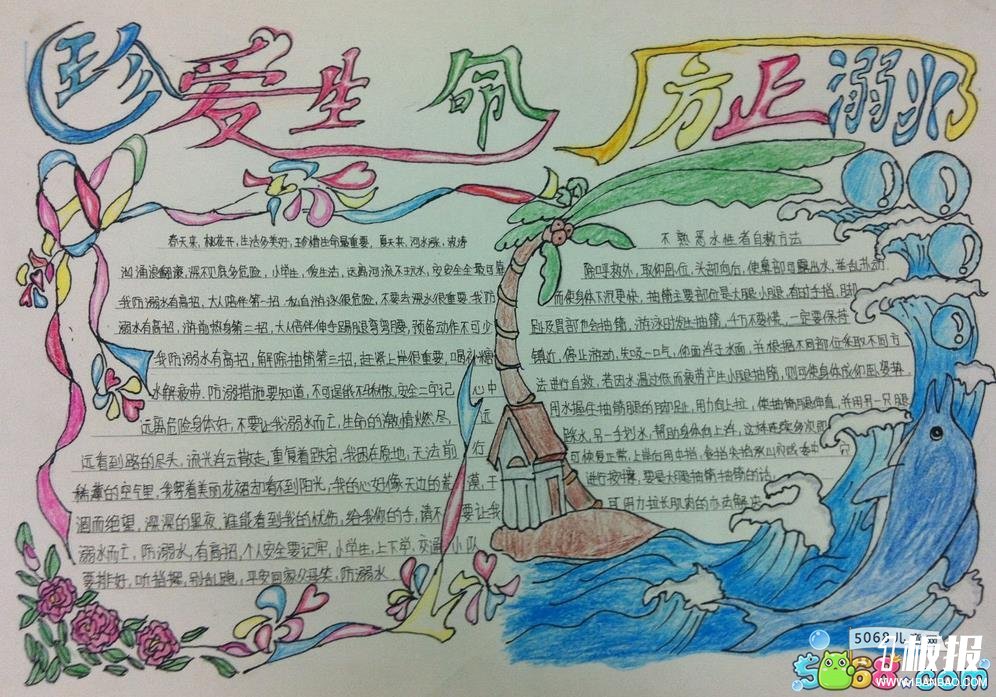 珍爱生命 方正溺水
春天来,桃花开,生活多美好,珍惜生命最重要,夏天来,河水涨,波涛
汹涌浪翻滚,深不见底多危险,小学生,爱生活,远离河流不玩水,安安全全最可靠
我防溺水有高招,大人陪伴第一招,私自游泳很危险,不要去深水很重要,我防
溺水有高招,游前热身第二招,大人陪伴伸手踢腿弯弯腰,预备动作不可少
我防溺水有高招,解除抽筋第三招,赶紧上岸很重要,喝补糖
水解疲劳,防溺措施要知道,不可逞能不稍微,安全一牢记,心中
远离危险身体好,不要让我溺水而亡,生命的激情燃尽,远
远看到路的尽头,流光浮云散走,重复着跌宕,我困在原地,无法前行
稀薄的空气里,我努着美丽花裙却看到阳光,我的心好像天边的荒漠,干
涸而绝望,深深的黑夜,谁能看到我的忧伤,给我你的手,请不要让我
溺水而亡,防溺水,有高招,个人安全要记牢,小学生,上下学,交通小队
要排好,听指挥,别乱跑,平安回家父母笑,防溺水
不熟悉水性者自救方法
除呼救外,取仰卧位,头部向后,使鼻部可露出水,举乱扑动
而使身体下沉更快,抽筋主要部位是大腿小腿,有时手指,脚
趾及胃部也会抽筋,游泳时发生抽筋,千万不要慌,一定要保持
镇近,停止游动,先吸一口气,仰面浮于水面,并根据不同部位采取不同方
法进行自救,若因水温过低而疲劳产生小腿抽筋,则可使身体成仰卧姿势
用水握住抽筋腿的脚趾,用力向上拉,使抽筋腿伸直,并用另一只腿
踩水,另一手划水,帮助身体向上浮,这样连续多次即
可恢复正常,上岸后用中指
进行按揉,要是大腿抽筋抽筋的话
可用力拉长肌肉的办法解决
5068儿童网
5068.com
1板报
WWW.1BANBAO.COM